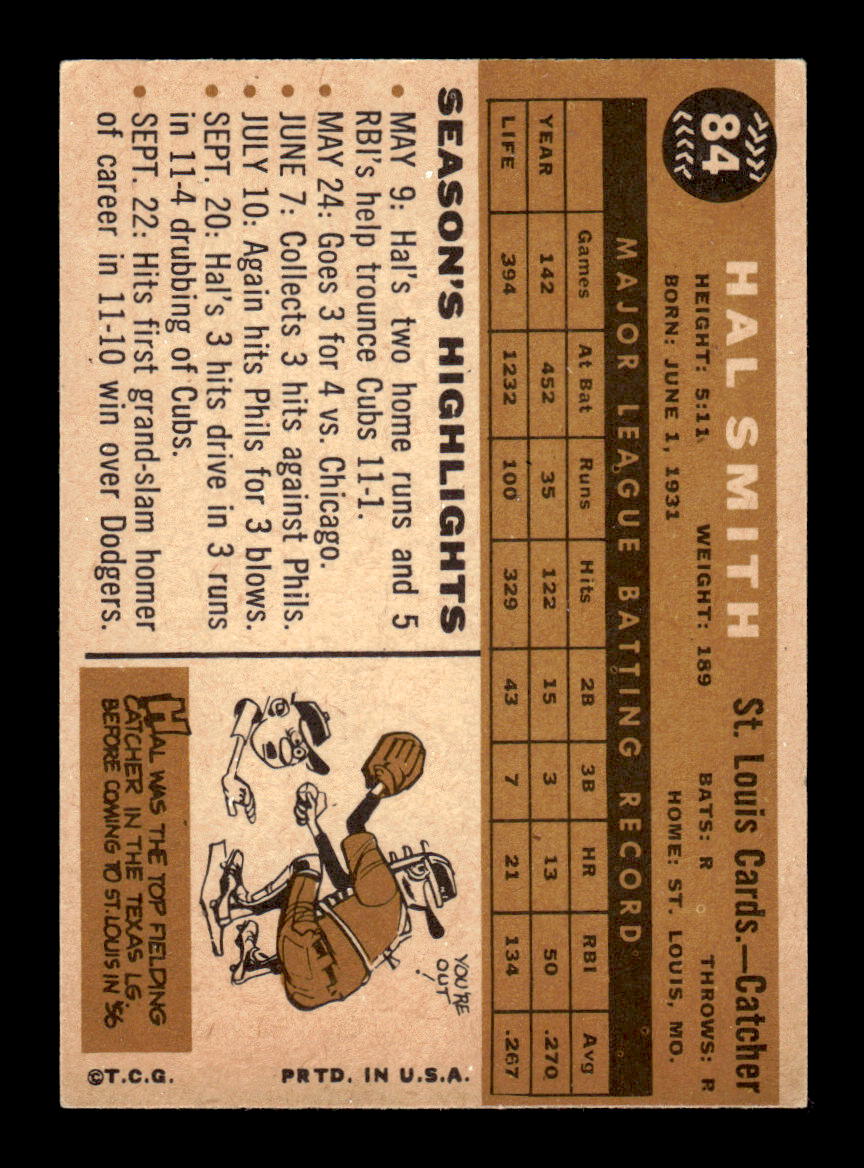 84
HAL SMITH
St. Louis Cards.—Catcher
HEIGHT: 5:11 WEIGHT: 189 BATS: R THROWS: R
BORN: JUNE 1, 1931 HOME: ST. LOUIS, MO.
MAJOR LEAGUE BATTING RECORD
Games At Bat Runs Hits 2B 3B HR RBI Avg
YEAR 142 452 35 122 15 3 13 50 .270
LIFE 394 1232 100 329 43 7 21 134 .267
SEASON'S HIGHLIGHTS
• MAY 9: Hal's two home runs and 5
RBI's help trounce Cubs 11-1.
• MAY 24: Goes 3 for 4 vs. Chicago.
• JUNE 7: Collects 3 hits against Phils.
• JULY 10: Again hits Phils for 3 blows.
• SEPT. 20: Hal's 3 hits drive in 3 runs
in 11-4 drubbing of Cubs.
• SEPT. 22: Hits first grand-slam homer
of career in 11-10 win over Dodgers.
YOU'RE
OUT!
HAL WAS THE TOP FIELDING
CATCHER IN THE TEXAS LG.
BEFORE COMING TO ST. LOUIS IN '56
©T.C.G. PRTD. IN U.S.A.